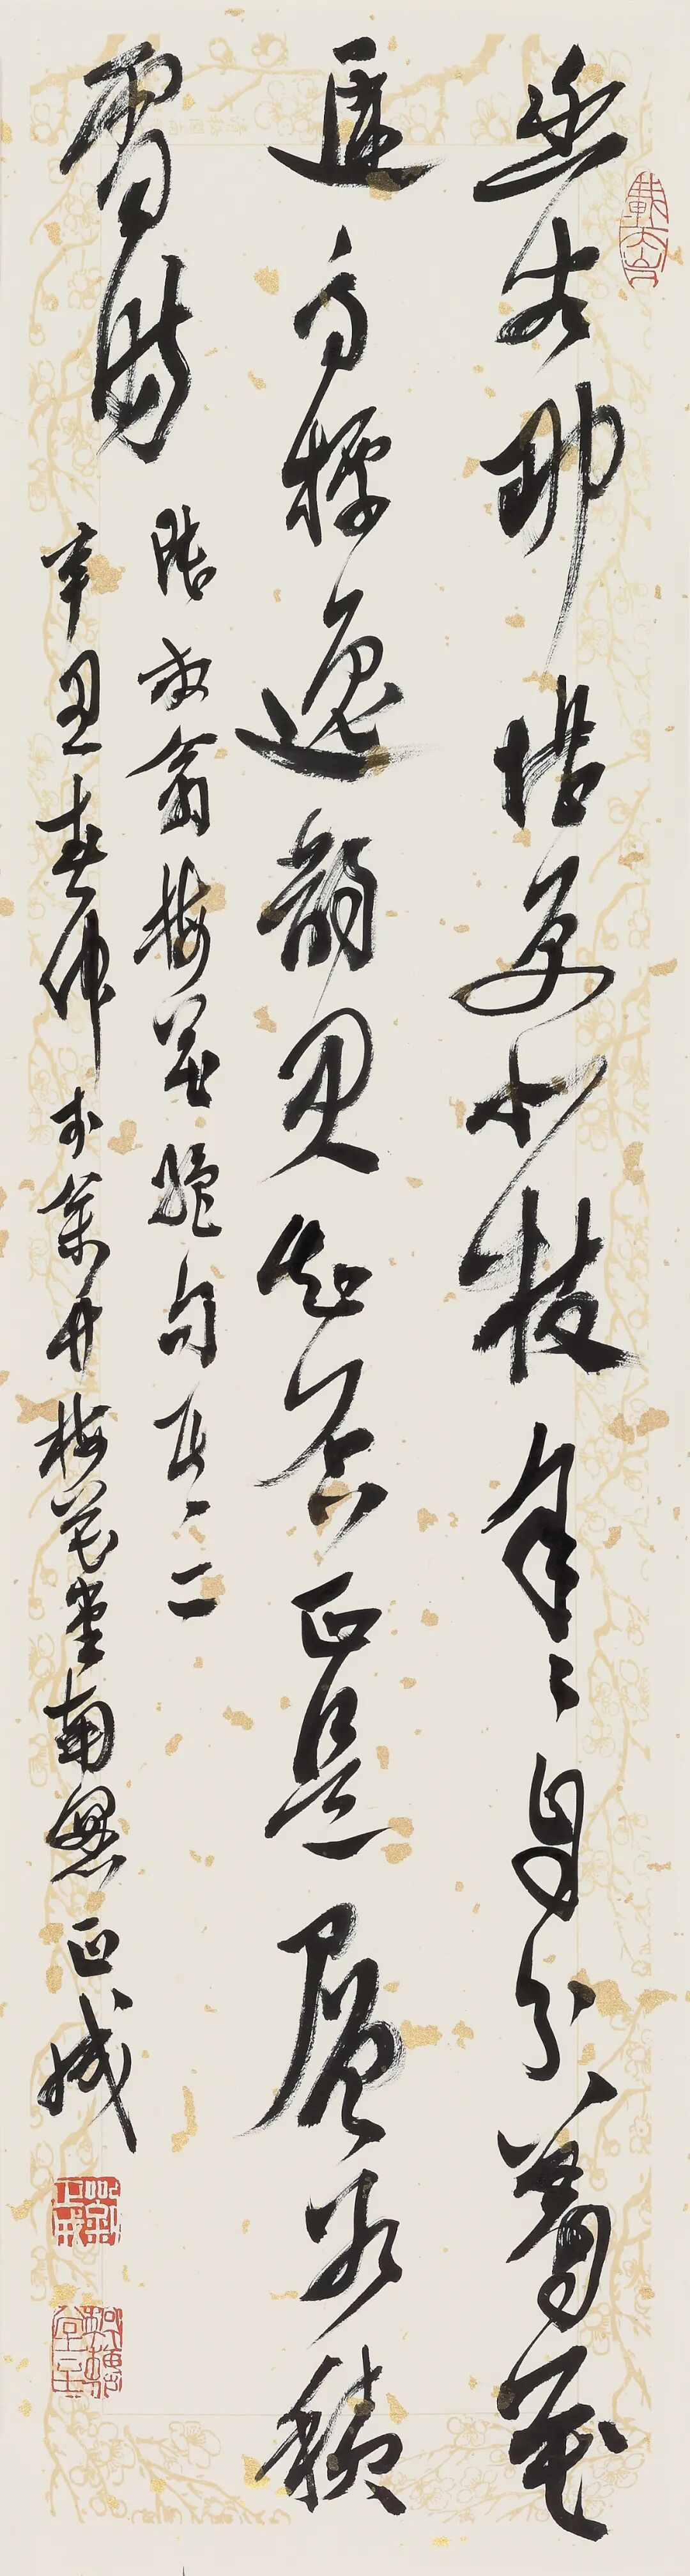 幽谷那堪更北枝年々自分著花
遲高標逸韻君知否正是層冰積
雪時
陸放翁梅花絕句其二
辛丑春仲於枩竹梅花堂南窗正成